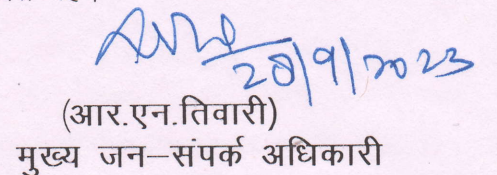 28/9/2023
(आर.एन.तिवारी)
मुख्य जन–संपर्क अधिकारी